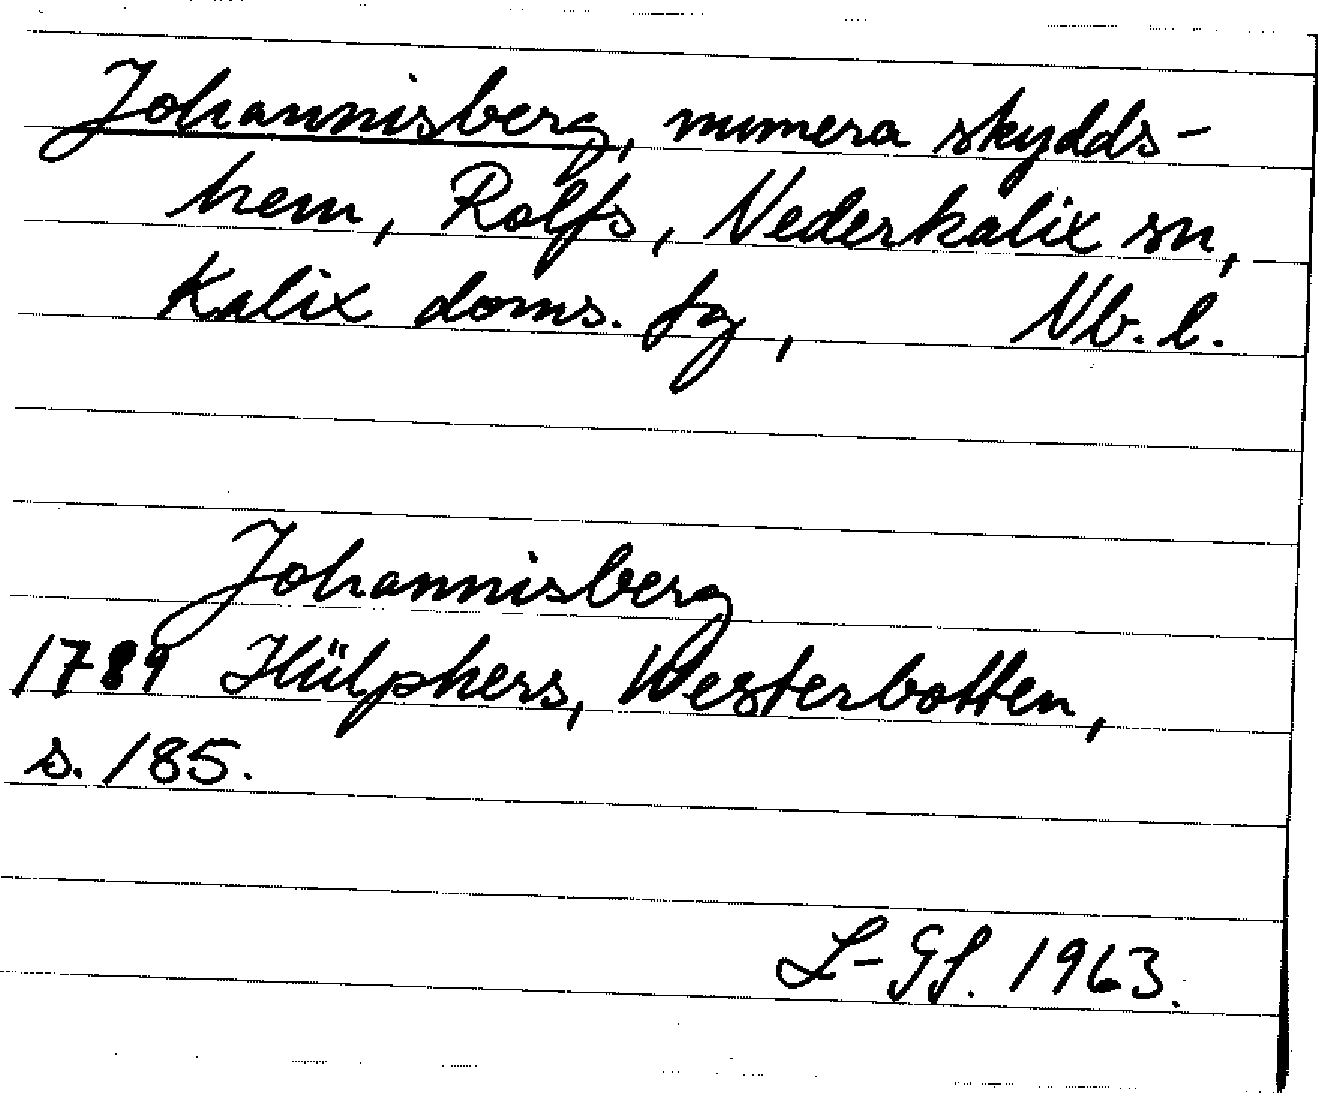 Johannisberg, numera skydds-
hem, Rolfs, Nederkalix sn,
Kalix doms. fg, Nb. l.
Johannisberg
1789 Hülphers, Westerbotten,
s. 185.
L-GS. 1963.